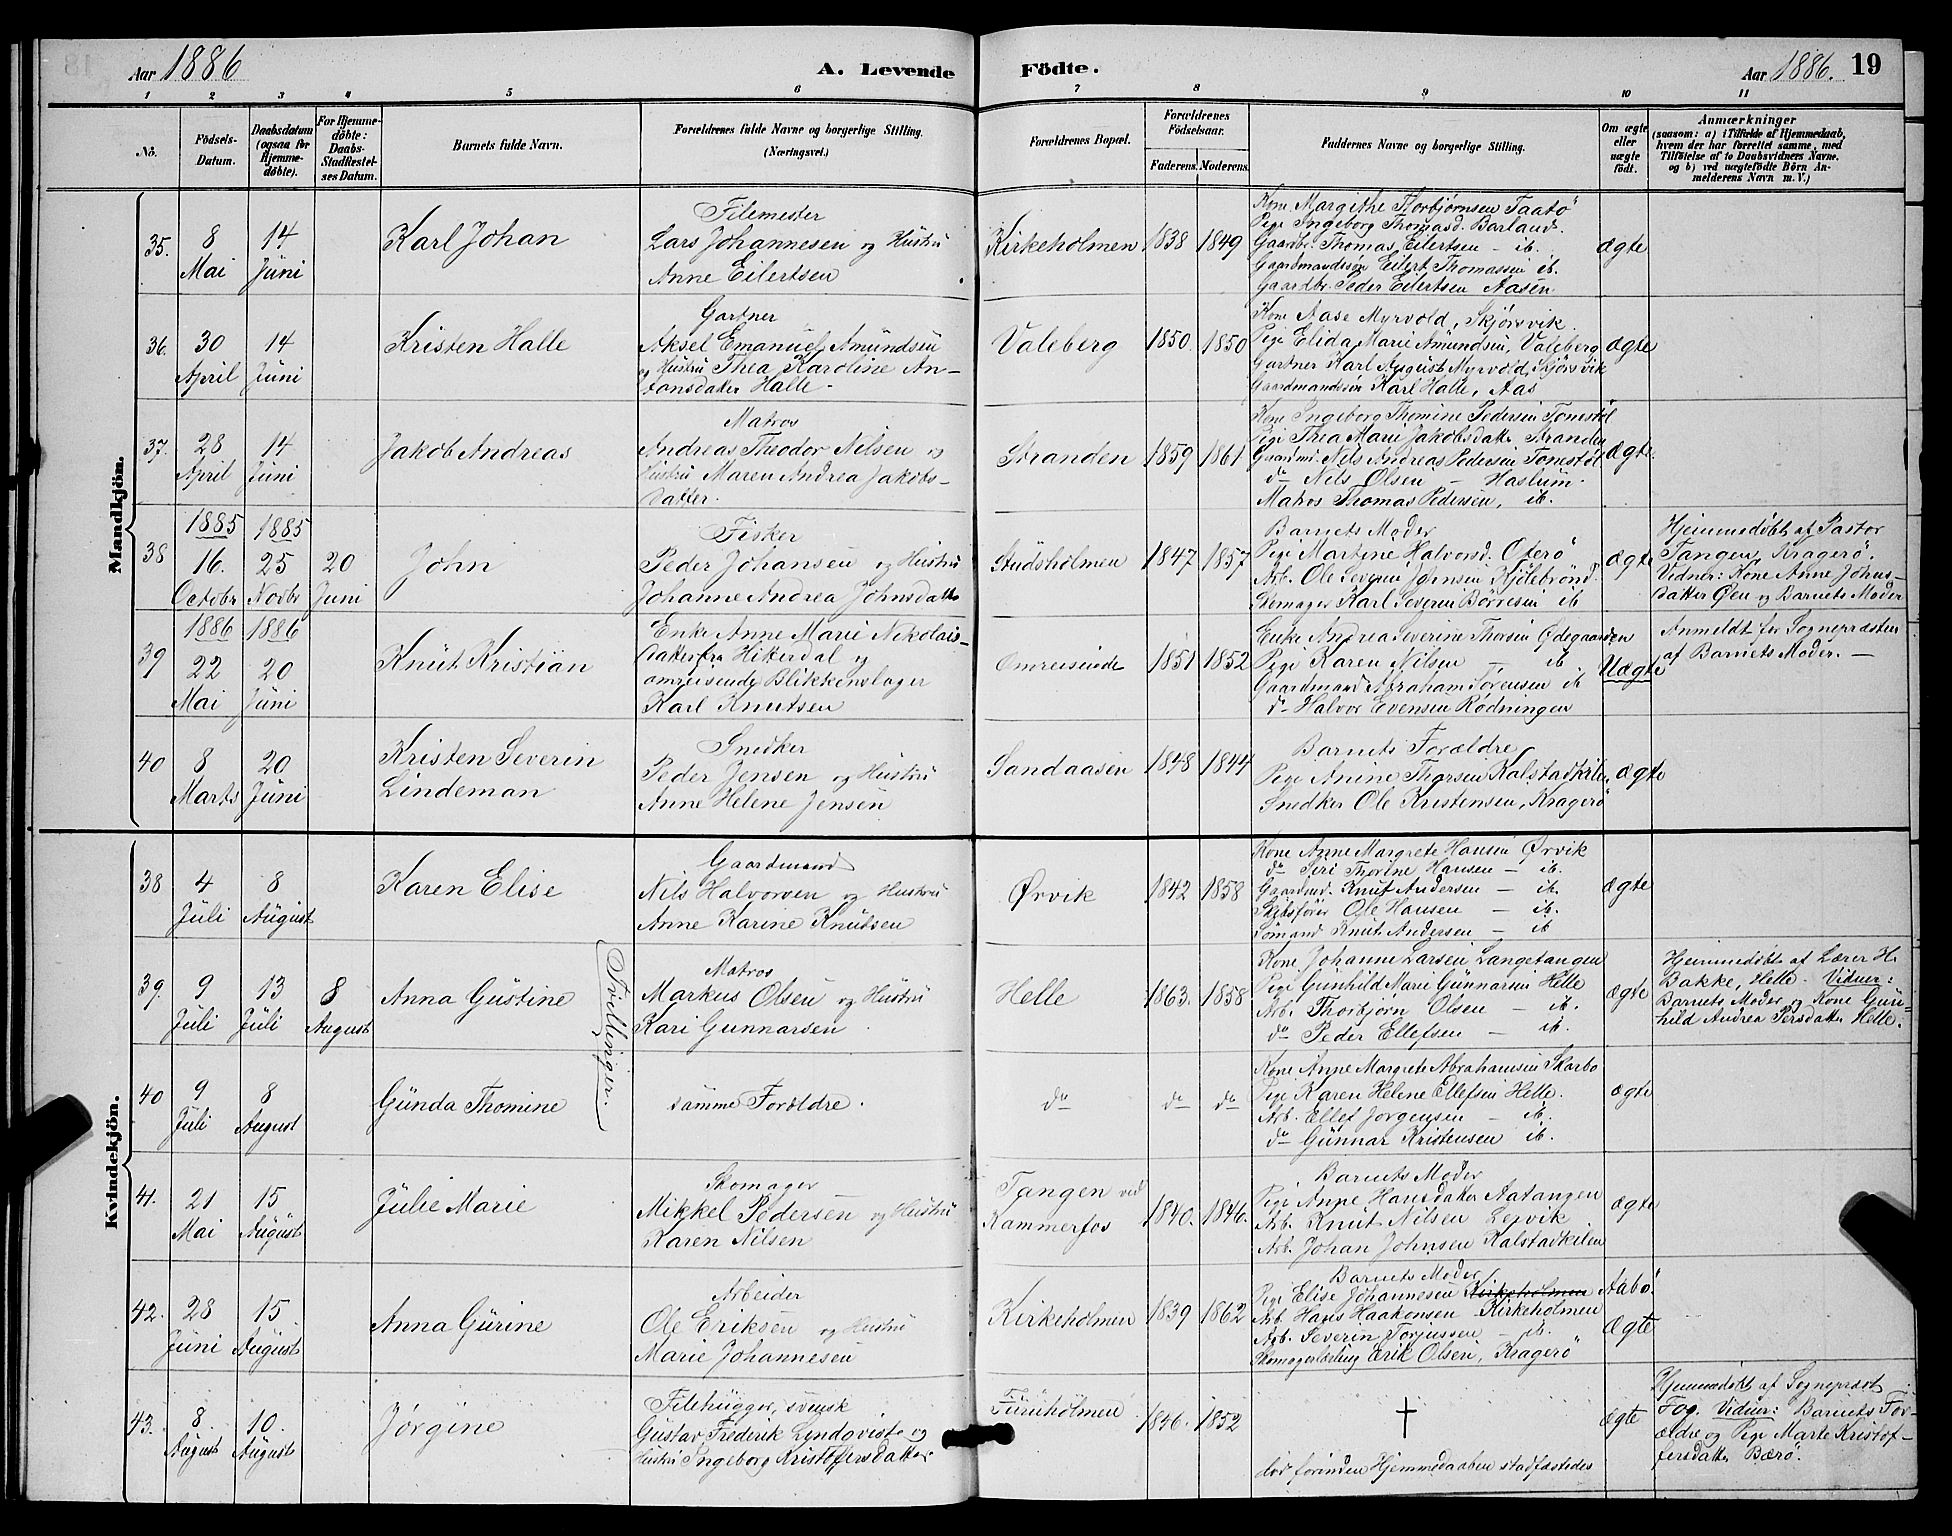 Aar 1886
A. Levende Födte.
Aar 1886. 19
1 2 3 4 5 6 7 8 9 10 11
No.
Födsels-Datum.
Daabsdatum (ogsaa for Hjemme-döbte).
For Hjemme-döbte: Daabs-Stadfæstel-ses Datum.
Barnets fulde Navn.
Forældrenes fulde Navne og borgerlige Stilling. (Næringsvei.)
Forældrenes Bopæl.
Forældrenes Födselsaar.
Faderens. Moderens.
Faddernes Navne og borgerlige Stilling.
Om ægte eller uægte födt.
Anmærkninger
(saasom: a) i Tilfælde af Hjemmedaab,
hvem der har forrettet samme, med
Tilföielse af to Daabsvidners Navne,
og b) ved uægtefödte Börn An-
melderens Navn m. V.)
Mandkjön.
35. 8 Mai
14 Juni
Karl Johan
Filemester
Lars Johannesen og Hustru
Anne Eilertsen
Kirkeholmen
1838 1849
Kone Margithe Thorbjørnsen Taatø
Pige Ingeborg Thomasd. Barland.
Gaardbr. Thomas Eilertsen – ib.
Gaardmandssøn Eilert Thomassen ib.
Gaardbr. Peder Eilertsen Aasen
ægte
36. 30 April
14 Juni
Kristen Halle
Gartner
Aksel Emanuel Amundsen
og Hustru Thea Karoline An-
tonsdatter Halle.
Valeberg
1850. 1850
Kone Aase Myrvold, Skjørsvik.
Pige Elida Marie Amundsen, Valeberg
Gartner Karl August Myrvold, Skjørsvik
Gaardmandssøn Karl Halle, Aas
ægte
37. 28 April
14 Juni
Jakob Andreas
Matros
Andreas Theodor Nilsen og
Hustru Maren Andrea Jakobs-
datter.
Stranden
1859 1861
Kone Ingeborg Thomine Pedersen Tonestøl
Pige Thea Marie Jakobsdatter Stranden
Gaardmd. Nils Andreas Pedersen Tonestøl
do Nils Olsen – Haslum.
Matros Thomas Pedersen, ib.
ægte.
38 1885 16. Octobr
1885 25 Novbr
20 Juni
John
Fisker
Peder Johansen og Hustru
Johanne Andrea Johnsdatter
Studsholmen
1847 1857
Barnets Moder
Pige Martine Halvorsd. Oterø
Arb. Ole Severin Jensen Kjølebrønd.
Skomager Karl Severin Børresen ib
ægte
Hjemmedøbt af Pastor
Tangen, Kragerø.
Vidner: Kone Anne Johns-
datter Øen og Barnets Moder
39 1886 22 Mai
1886 20 Juni
Knut Kristian
Enke Anne Marie Nikolais-
datter fra Hitterdal og
omreisende Blikkenslager
Karl Knutsen
Omreisende
1851 1852
Enke Andrea Severine Thorsen Ødegaarden
Pige Karen Nilsen – ib.
Gaardmand Abraham Sørensen ib
do Halvor Evensen Rødningen
Uægte
Anmeldt for Sognepræsten
af Barnets Moder. –
40 8 Marts
20 Juni
Kristen Severin
Lindeman
Snedker
Peder Jensen og Hustru
Anne Helene Jensen
Sandaasen
1848 1844
Barnets Forældre
Pige Anine Thorsen Kalstadkilen
Snedker Ole Kristensen, Kragerø
ægte
Kvindekjön.
38 4 Juli
8 August
Karen Elise
Gaardmand
Nils Halvorsen og Hustru
Anne Karine Knutsen
Ørvik
1842 1858
Kone Anne Margrete Hansen Ørvik
do Siri Thorine Hansen – ib.
Gaardmd. Knut Andersen – ib.
Skibsfører Ole Hansen – ib.
Sømand Knut Andersen – ib
ægte
39. 9 Juli
13 Juli
8 August
Anna Gustine
Tvillinger.
Matros
Markus Olsen og Hustru
Kari Gunnarsen.
Helle
1863. 1858
Kone Johanne Larsen Langetangen
Pige Gunhild Marie Gunnarsen Helle
Arb. Thorbjørn Olsen – ib.
do Peder Ellefsen – ib.
ægte
Hjemmedøbt af Lærer H.
Bakke, Helle. Vidner:
Barnets Moder og Kone Gun-
hild Andrea Persdatter Helle.
40 9 Juli
8 August
Gunda Thomine
samme Forældre.
do
do do
Kone Anne Margrete Abrahamsen Skarbo
Pige Karen Helene Ellefsen Helle.
Arb. Ellef Jørgensen – ib.
do Gunnar Kristensen ib.
ægte
41. 21 Mai
15 August
Julie Marie
Skomager
Mikkel Pedersen og Hustru
Karen Nilsen
Tangen ved
Kammerfos
1840. 1846.
Barnets Moder
Pige Anne Hansdatter Aatangen
Arb. Knut Nilsen Lervik
Arb. Johan Johnsen Kalstadkilen
ægte
42. 28 Juni
15 August
Anna Gurine
Arbeider
Ole Eriksen og Hustru
Marie Johannesen
Kirkeholmen
1839 1862
Barnets Moder
Pige Elise Johannesen Kirkeholmen Aabø.
Arb. Hans Haakonsen Kirkeholmen
Arb. Severin Torjussen – ib.
Skomagerlærling Erik Olsen, Kragerø
ægte
43. 8 August
10. August
Jørgine
Filehugger, svensk
Gustav Frederik Lindqvist og
Hustru Ingeborg Kristoffersdatter
Furuholmen
1846. 1852
†
død forinden Hjemmedaaben stadfæstedes
ægte
Hjemmedøbt af Sognepræst
Fog. Vidner: Barnets For-
ældre og Pige Marte Kristof-
fersdatter Bærø.